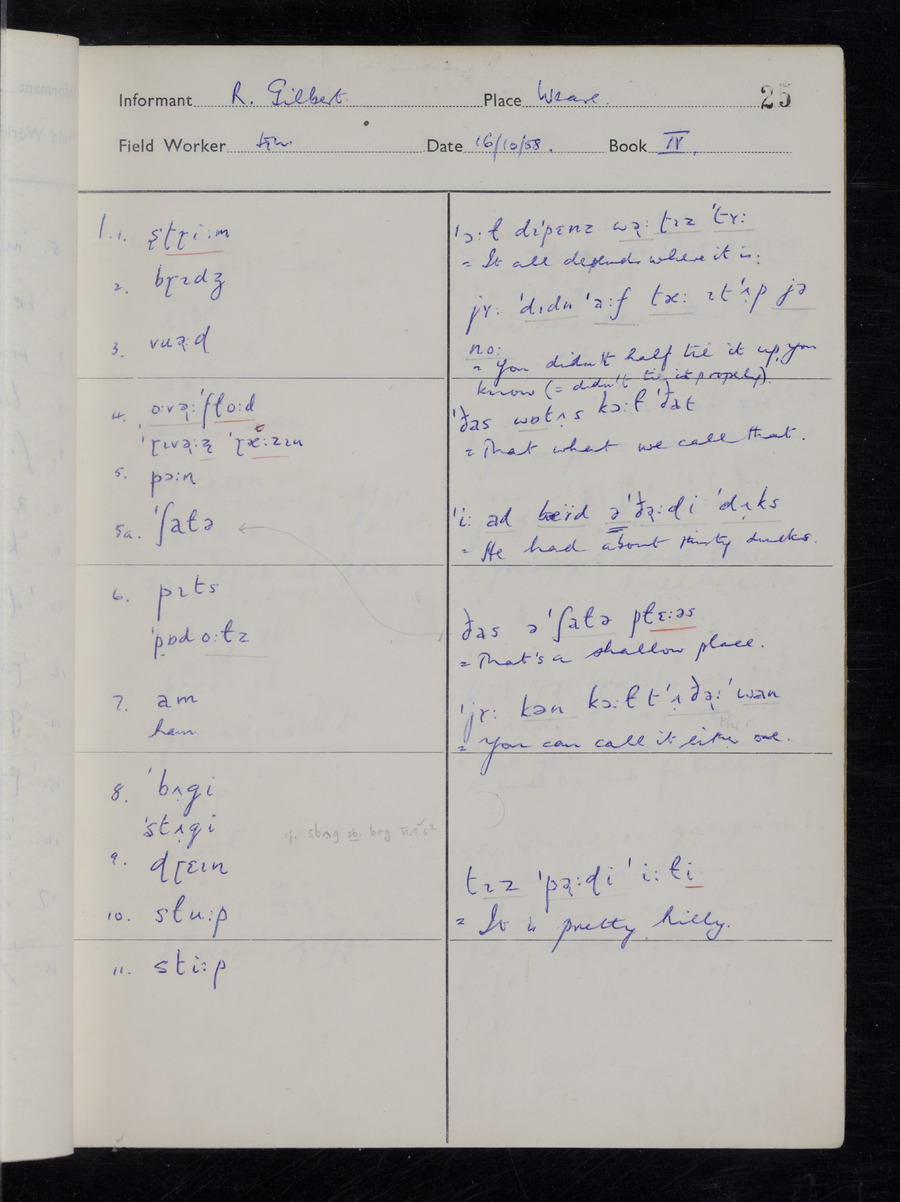 Informant R. Gilbert. Place Weare 25
Field Worker Date 16/10/58. Book IV.
1.1. ʂtɽi:m
2. bɽɪdʒ
3. vuə̣:d
4. o:və̣:ˈflo:d
ˈɽɪvə̣:z̩
5. pɔ:n
5a. ˈʃatə
6. pɪts
ˈpɒdo:tz
7. am
ham
8. ˈbʌgi
ˈstʌgi
9. dɽɛɪn
10. stu:p
11. sti:p
ˈɔ:t dɪˈpɛnz wə̣: tɪz ˈtʏ:
= It all depends where it is.
jʏ: ˈdɪdn ˈa:f tɒ: ɪtˈʌp jə
no:
= You didn't half tie it up, you
know (= didn't tie it properly).
ˈðas wɒtʌs kɔ:t ˈðat
= That what we call that.
ˈi: ad ə ˈðə̣:di ˈdʌks
= He had about thirty ducks.
ðas əˈʃatə plɛ:əs
= That's a shallow place.
ˈjʏ: kən kɔ:t tˈʌðə̣: ˈwan
= You can call it either one.
tɪz ˈpə̣:di ˈi:ti
= It is pretty hilly.